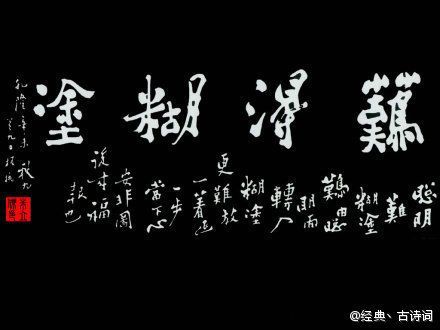 難得糊塗
聰明
難
糊塗
難由聰
明而
轉入
糊塗
更難放
一著退
一步
當下心
安非圖
後來福
報也
乾隆辛未秋九
月十九日板橋
@经典、古诗词